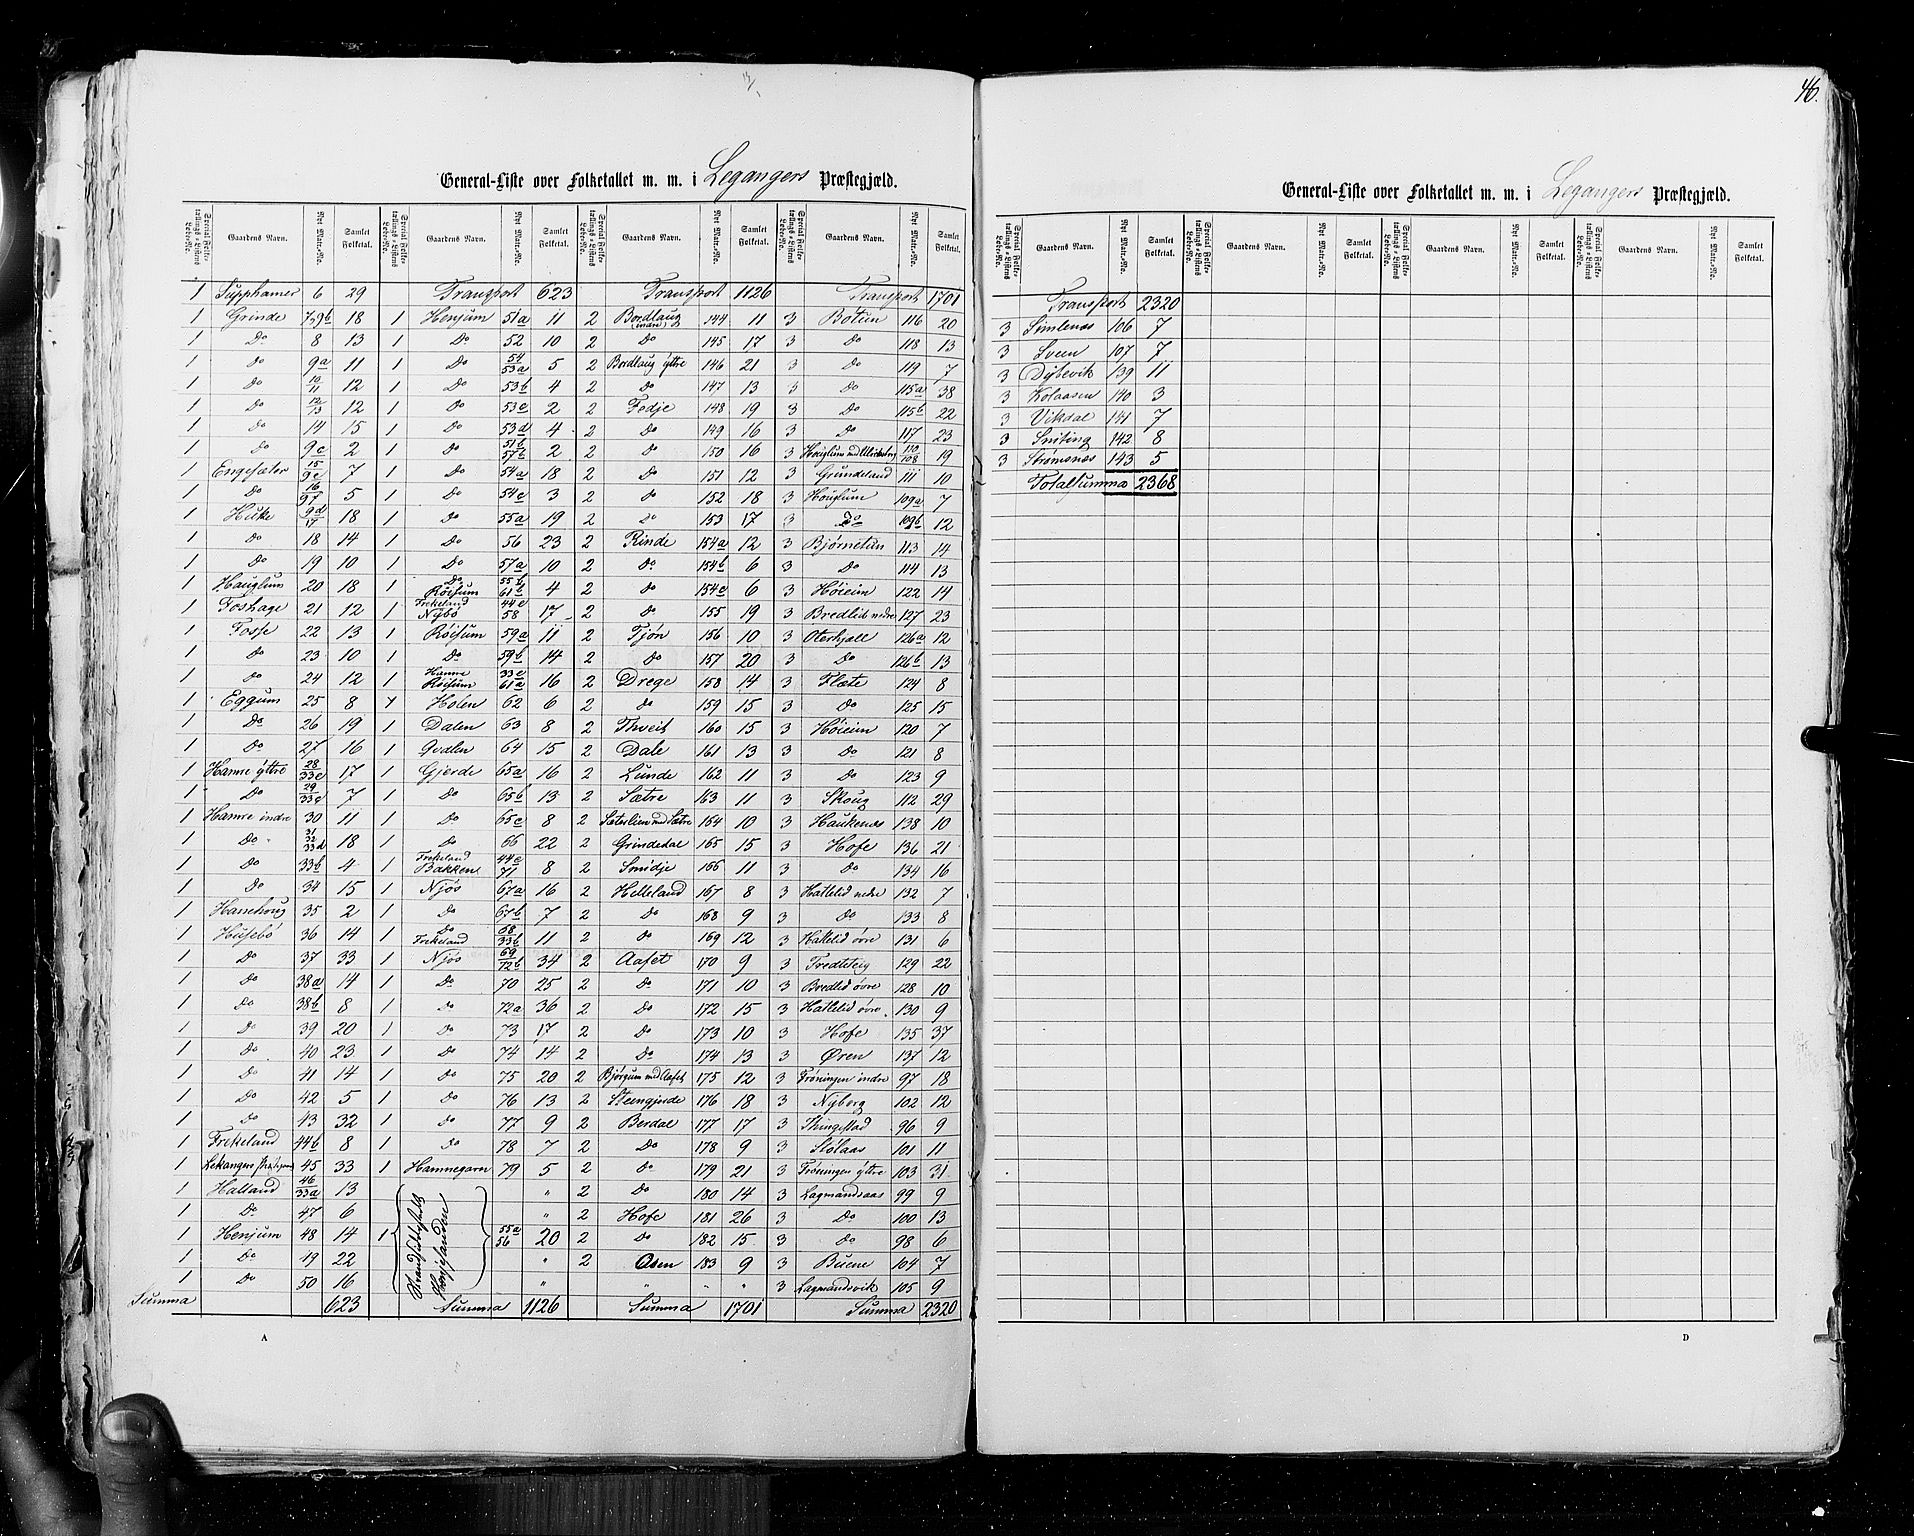 46.
General-Liste over Folketallet m. m. i Legangers Præstegjæld.
Special Folketællings-Listens Løbe-No. Gaardens Navn. Nyt Matr.-No. Samlet Folketal. Special Folketællings-Listens Løbe-No. Gaardens Navn. Nyt Matr.-No. Samlet Folketal. Special Folketællings-Listens Løbe-No. Gaardens Navn. Nyt Matr.-No. Samlet Folketal. Special Folketællings-Listens Løbe-No. Gaardens Navn. Nyt Matr.-No. Samlet Folketal.
1 Supphamer 6 29 Transport 623 Transport 1126 Transport 1701
1 Grinde 7,9b 18 1 Henjum 51a 11 2 Bordlaug (indre) 144 11 3 Botun 116 20
1 Do 8 13 1 Do 52 10 2 Do 145 17 3 Do 118 13
1 Do 9a 11 1 Do 54 53a 5 2 Bordlaug yttre 146 21 3 Do 119 7
1 Do 10 11 12 1 Do 53b 4 2 Do 147 13 3 Do 115a 38
1 Do 12 13 12 1 Do 53c 2 2 Fedje 148 19 3 Do 115b 22
1 Do 14 15 1 Do 53d 4 2 Do 149 16 3 Do 117 23
1 Do 9c 2 1 Do 51b 57b 2 2 Do 150 16 3 110 108 19
1 Engesæter 15 9e 7 1 Do 54a 18 2 Do 151 12 3 Grundeland 111 10
1 Do 16 9f 5 1 Do 54c 3 2 Do 152 18 3 Houglum 109a 7
1 Huke 9d 17 18 1 Do 55a 19 2 Do 153 17 3 Do 109b 12
1 Do 18 14 1 Do 56 23 2 Rinde 154a 12 3 Bjørnetun 113 14
1 Do 19 10 1 Do 57a 10 2 Do 154b 6 3 Do 114 13
1 Hauglum 20 18 1 Do Röisum 55b 61b 4 2 Do 154c 6 3 Høieim 122 14
1 Foshage 21 12 1 Frekeland Nybö 44c 58 17 2 Do 155 19 3 Bredlid nedre 127 23
1 Fosse 22 13 1 Röisum 59a 11 2 Tjøn 156 10 3 Oterhjall 126a 12
1 Do 23 10 1 Do 59b 14 2 Do 157 20 3 Do 126b 13
1 Do 24 12 1 Hamre Röisum 33c 61a 16 2 Drege 158 14 3 Flæte 124 8
1 Eggum 25 8 1 Holen 62 6 2 Do 159 15 3 Do 125 15
1 Do 26 19 1 Dalen 63 8 2 Thveit 160 15 3 Høieim 120 7
1 Do 27 16 1 Qvålen 64 15 2 Dale 161 13 3 Do 121 8
1 Hamre yttre 28 33c 17 1 Gjerde 65a 16 2 Lunde 162 11 3 Do 123 9
1 Do 29 33c 7 1 Do 65b 13 2 Sætre 163 11 3 Skoug 112 29
1 Hamre indre 30 11 1 Do 65c 8 2 Sæterlien med Sætre 164 10 3 Haukenæs 138 10
1 Do 31 32 33d 18 1 Do 66 22 2 Grindedal 165 15 3 Hofe 136 21
1 Do 33b 4 1 Frekeland Bakken 44c 71 8 2 Smidje 166 11 3 Do 134 16
1 Do 34 15 1 Njøs 67a 16 2 Helleland 167 8 3 Hatlelid nedre 132 7
1 Hanehoug 35 2 1 Do 67b 7 2 Do 168 9 3 Do 133 8
1 Husebö 36 14 1 Do Frekeland 68 33b 11 2 Do 169 12 3 Hatlelid övre 131 6
1 Do 37 33 1 Njøs 69 72b 34 2 Aafet 170 9 3 Tredteteig 129 22
1 Do 38a 14 1 Do 70 25 2 Do 171 10 3 Bredlid övre 128 10
1 Do 38b 8 1 Do 72a 36 2 Do 172 15 3 Hatlelid övre 130 9
1 Do 39 20 1 Do 73 17 2 Do 173 10 3 Hofe 135 37
1 Do 40 23 1 Do 74 14 2 Do 174 13 3 Øren 137 12
1 Do 41 14 1 Do 75 20 2 Bjørgum med Aafet 175 12 3 Frøningen indre 97 18
1 Do 42 5 1 Do 76 13 2 Steengjerde 176 18 3 Nyborg 102 12
1 Do 43 32 1 Do 77 9 2 Berdal 177 17 3 Thingstad 96 9
1 Frekeland 44b 8 1 Do 78 7 2 Do 178 9 3 Stølaas 101 11
1 Lekangers 45 33 1 Hamnegarn 79 5 2 Do 179 21 3 Frøningen yttre 103 31
1 Halland 46 33a 13 " 2 Do 180 14 3 Lagmandsaas 99 9
1 Do 47 6 " 2 Hofe 181 26 3 Do 100 13
1 Henjum 48 14 1 Strandsiddersteder Henjesanden 55a 56 20 2 Do 182 15 3 Do 98 6
1 Do 49 22 " 2 Asen 183 9 3 Buene 104 7
1 Do 50 16 " " " " 3 Lagmandsvik 105 9
Summa 623 Summa 1126 Summa 1701 Summa 2320
A
General-Liste over Folketallet m. m. i Legangers Præstegjæld.
Special Folketællings-Listens Løbe-No. Gaardens Navn. Nyt Matr.-No. Samlet Folketal. Special Folketællings-Listens Løbe-No. Gaardens Navn. Nyt Matr.-No. Samlet Folketal. Special Folketællings-Listens Løbe-No. Gaardens Navn. Nyt Matr.-No. Samlet Folketal. Special Folketællings-Listens Løbe-No. Gaardens Navn. Nyt Matr.-No. Samlet Folketal.
Transport 2320
3 Simlenæs 106 7
3 Sveen 107 7
3 Dybevik 139 11
3 Kolaasen 140 3
3 Vikdal 141 7
3 Sniting 142 8
3 Strømsnæs 143 5
Totalsumma 2368
D